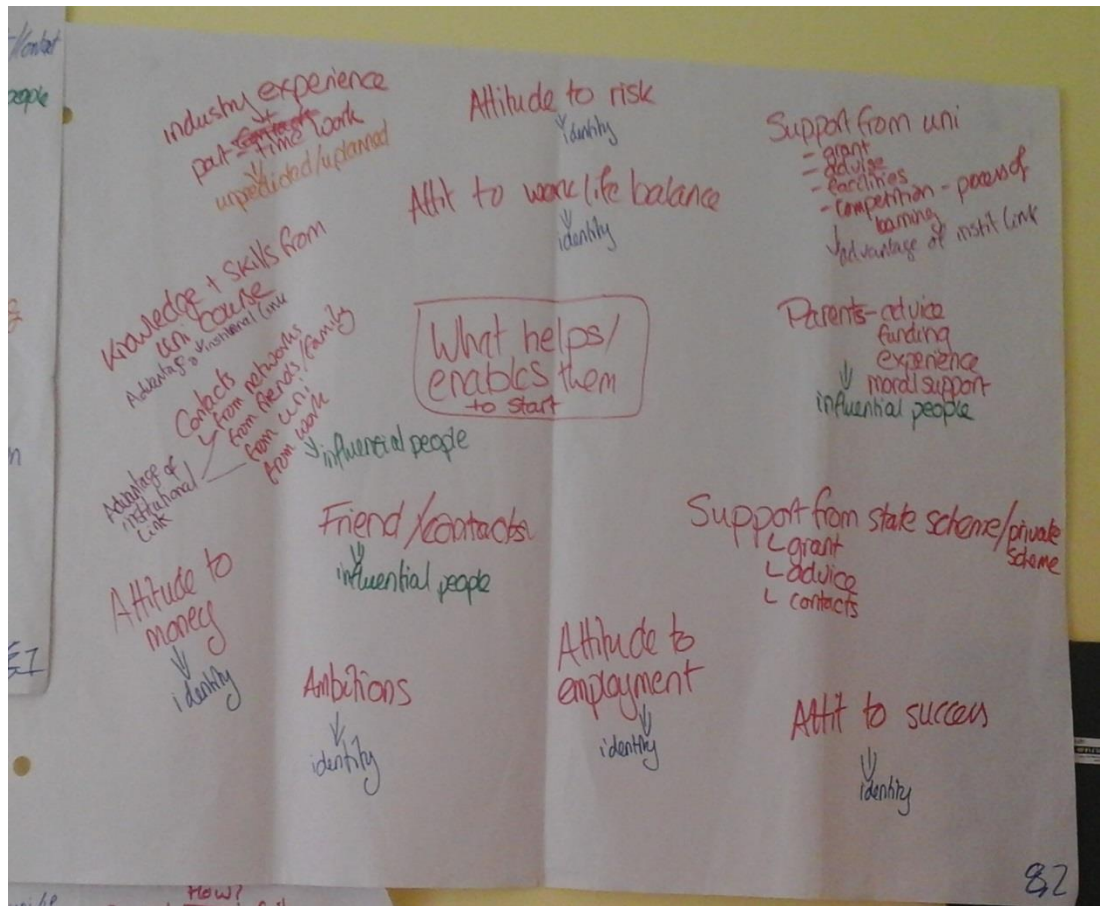 /Contact
people
industry experience
+
part-time work
unpredicted/uplanned
Attitude to risk
identity
Attit to work life balance
identity
Support from uni
- grant
- advise
- facilities
- competition - process of
learning
advantage of instit link
Knowledge + skills from
uni course
Advantage of institutional link
Contacts
from networks
from friends/family
from uni
from work
influencial people
Advantage of
institutional
link
What helps/
enables them
to start
Parents - advice
funding
experience
moral support
influential people
Friend/contacts
influential people
Support from state scheme/private
scheme
grant
advice
contacts
Attitude to
money
identity
Ambitions
identity
Attitude to
employment
identity
Attit to success
identity
&2
How?